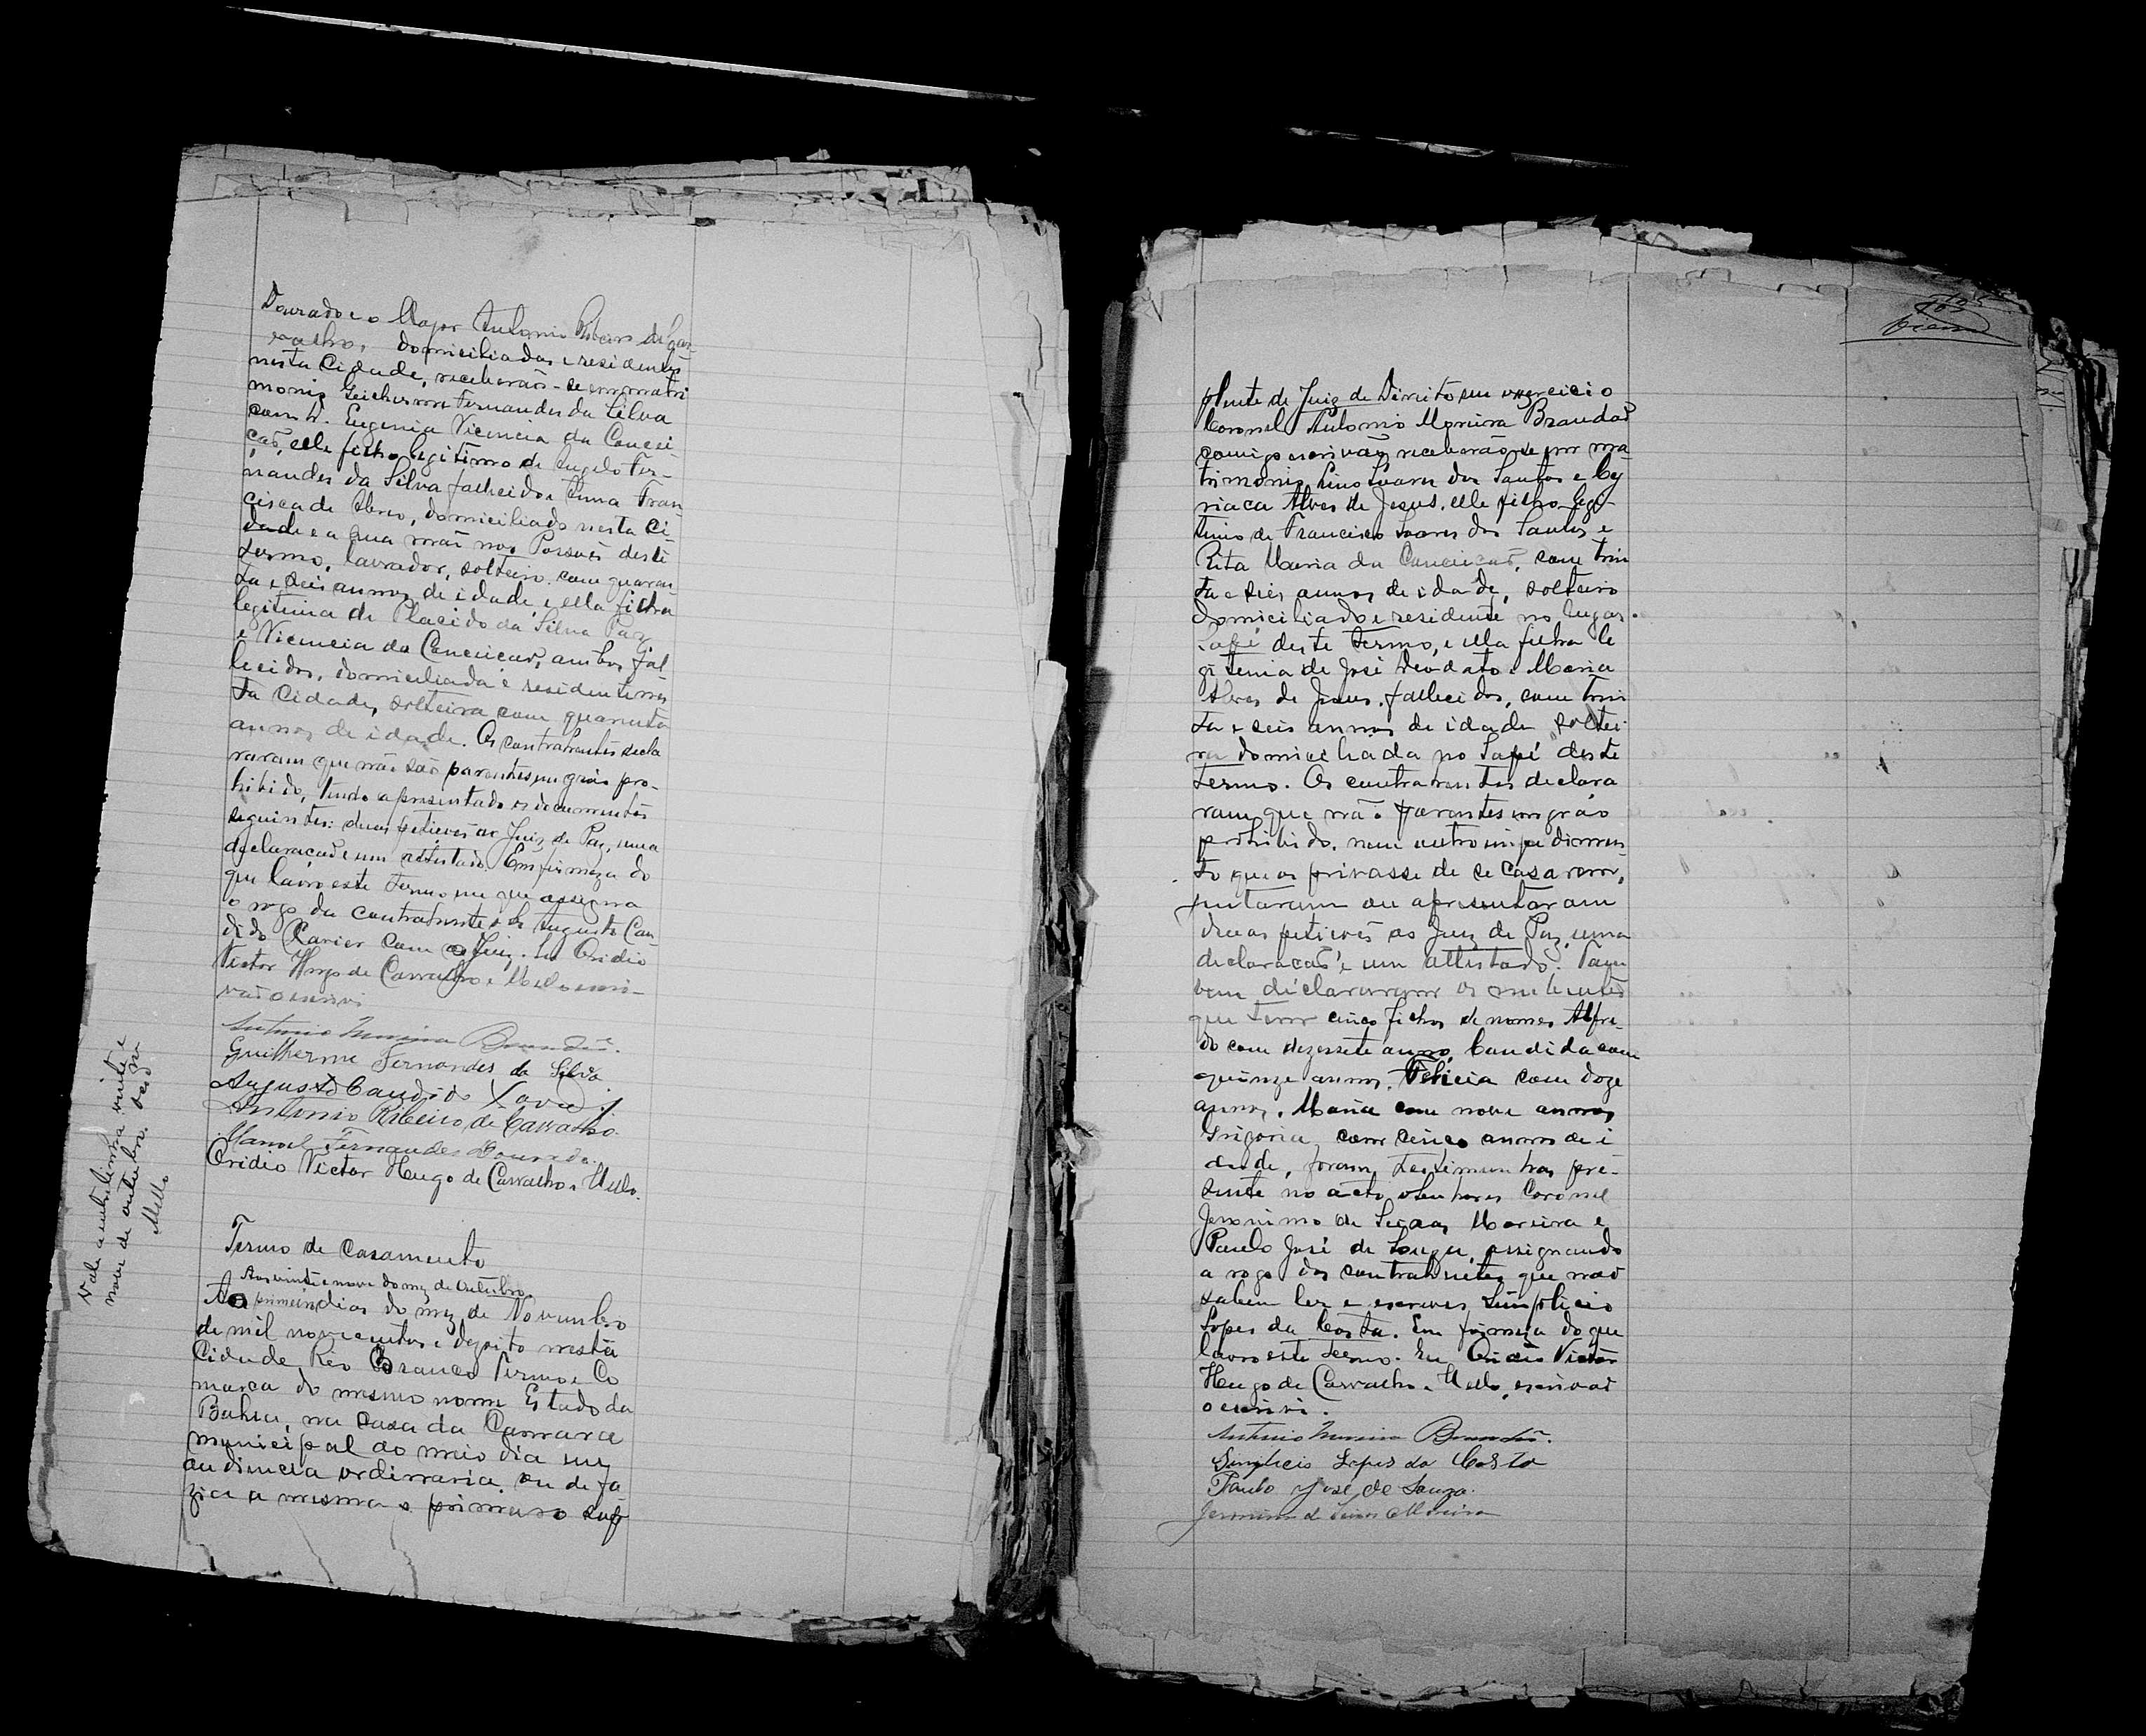 Dourado e o Major Antonio Ribeiro de Car-
valho, domiciliados e residentes
nesta Cidade, receberão-se em matri
monio Geilherme Fernandes da Silva
com D. Eugenia Vicencia da Concei-
ção, elle filho legitimo de Angelo Fer-
nandes da Silva fallecido e Anna Fran-
cisca de Abreu, domiciliado nesta Ci-
dade e a sua mãe nos deste
termo, lavrador, solteiro, com quaren-
ta e seis annos de idade, e ella filha
legitima de Placido da Silva Paz
e Vicencia da Conceicão, ambos fal-
lecidos, domiciliada e residente nes
ta Cidade, solteira com quarenta
annos de idade. Os contrahentes decla
raram que não são parentes em gráo pro-
hibido, tendo apresentado os documentos
seguintes: duas petições ao Juiz de Paz, uma
declaracão e um attestado. Em firmeza do
que lavro este termo em que assigna
o rogo da contrahente Augusto Can-
dido Xavier com o Juiz. Eu Ovidio
Victor Hugo de Carvalho e Mello escri-
vão o escrivi
Antonio Moreira Brandão.
Guilherme Fernandes da Silva
Augusto Candido Xavier
Antonio Ribeiro de Carvalho.
Manoel Fernandes Dourado.
Ovidio Victor Hugo de Carvalho e Mello.
Vale a entrelinha vinte e
nove de outubro.
Mello
Termo de Casamento
Aos vinte e nove do mez de Outubro
Ao primeiro dias do mez de Novembro
de mil novecentos e dezoito nesta
Cidade Rio Branco Termo e Co
marca do mesmo nome Estado da
Bahia, na casa da Camara
municipal ao meio dia em
audiencia ordinaria, ou de fa-
zia a mesma o primeiro sup
plente de Juiz de Direito em exercicio
Coronel Antonio Moreira Brandão
comigo escrivão, receberão-se em ma-
trimonio Lino Soares dos Santos e Cy
riaca Alves de Jesus, elle filho legi-
timo de Francisco Soares dos Santos e
Rita Maria da Conceicão, com trin
ta e seis annos de idade, solteiro
domiciliado e residente no lugar
Sapé deste termo, e ella filha le
gitima de José Deodato e Maria
Alves de Jesus, fallecidos, com trin
ta e seis annos de idade soltei
ra domiciliada no Sapé deste
termo. Os contrahentes declara
ram que não parentes em gráo
prohibido, nem outro impedimen
to que os privasse de se casarem,
juntaram ou apresentaram
duas petições ao Juiz de Paz, uma
declaracão e um attestado. Tam
bem declararam os nubentes
que tem cinco filhos de nomes Alfre-
do com dezessete annos, Candida com
quinze annos, Felicia com doze
annos, Maria com nove annos
Grigoria, com cinco annos de i
dade, foram testemunhas pre-
sente no acto, os senhores Coronel
Jeronimo de Seixas Moreira e
Paulo José de Souza, assignando
a rogo dos contrahentes que não
sabem ler e escrever, Simplicio
Lopes da Costa. Em firmeza do que
lavro este termo. Eu Ovidio Victor
Hugo de Carvalho e Mello, escrivão
o escrivi.
Antonio Moreira Brandão.
Simplicio Lopes da Costa
Paulo José de Souza.
Jeronimo de Seixas Moreira